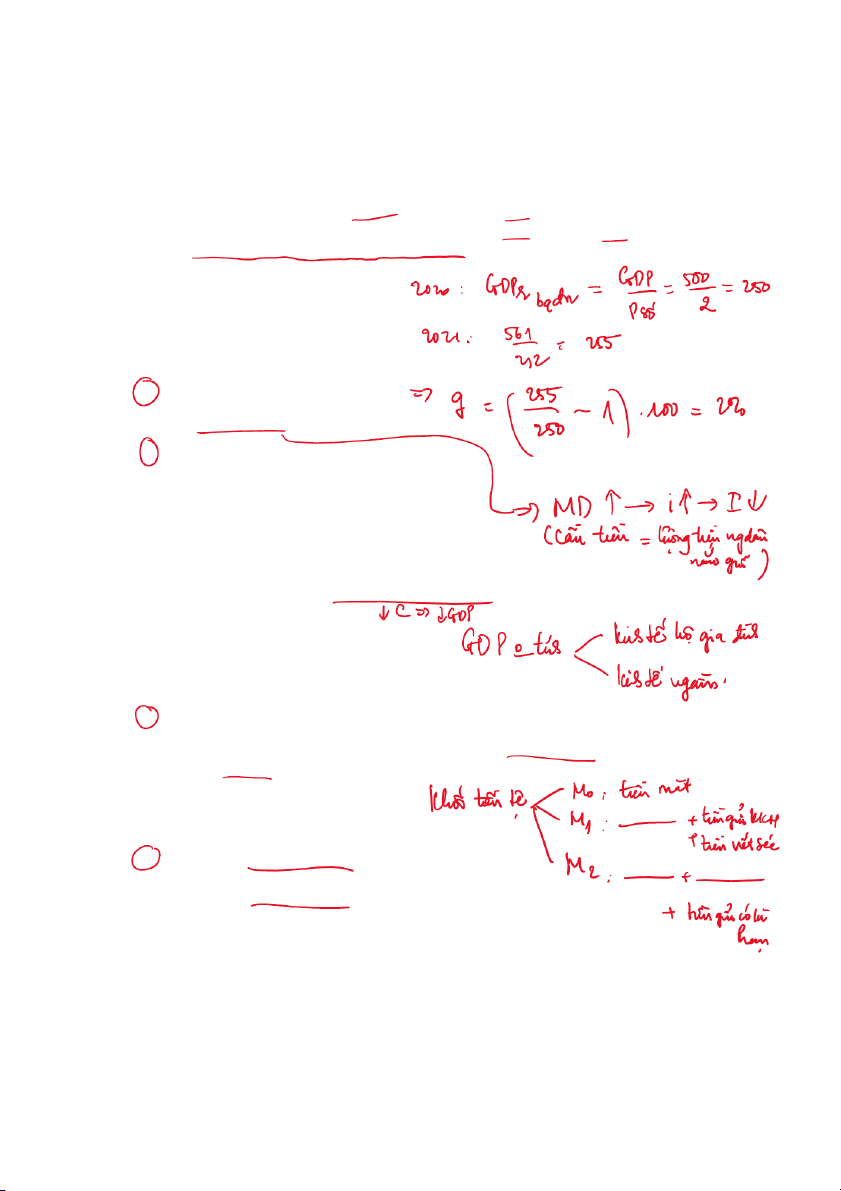 2020 : GDPr bqđn = GDP / Psố = 500 / 2 = 250
2021 : 561 / 2,2 = 255
=> g = ( 255 / 250 - 1 ) . 100 = 2%
=> MD ↑ → i ↑ → I ↓
( Cầu tiền = lượng tiền ng dân
nắm giữ )
↓ C => ↓ GDP
GDP o tính
kinh tế hộ gia đình
kinh tế ngầm
Khối tiền tệ
M0 : tiền mặt
M1 : ——— + tiền gửi KKH
+ tiền viết séc
M2 : ——— + ———
+ tiền gửi có kì
hạn